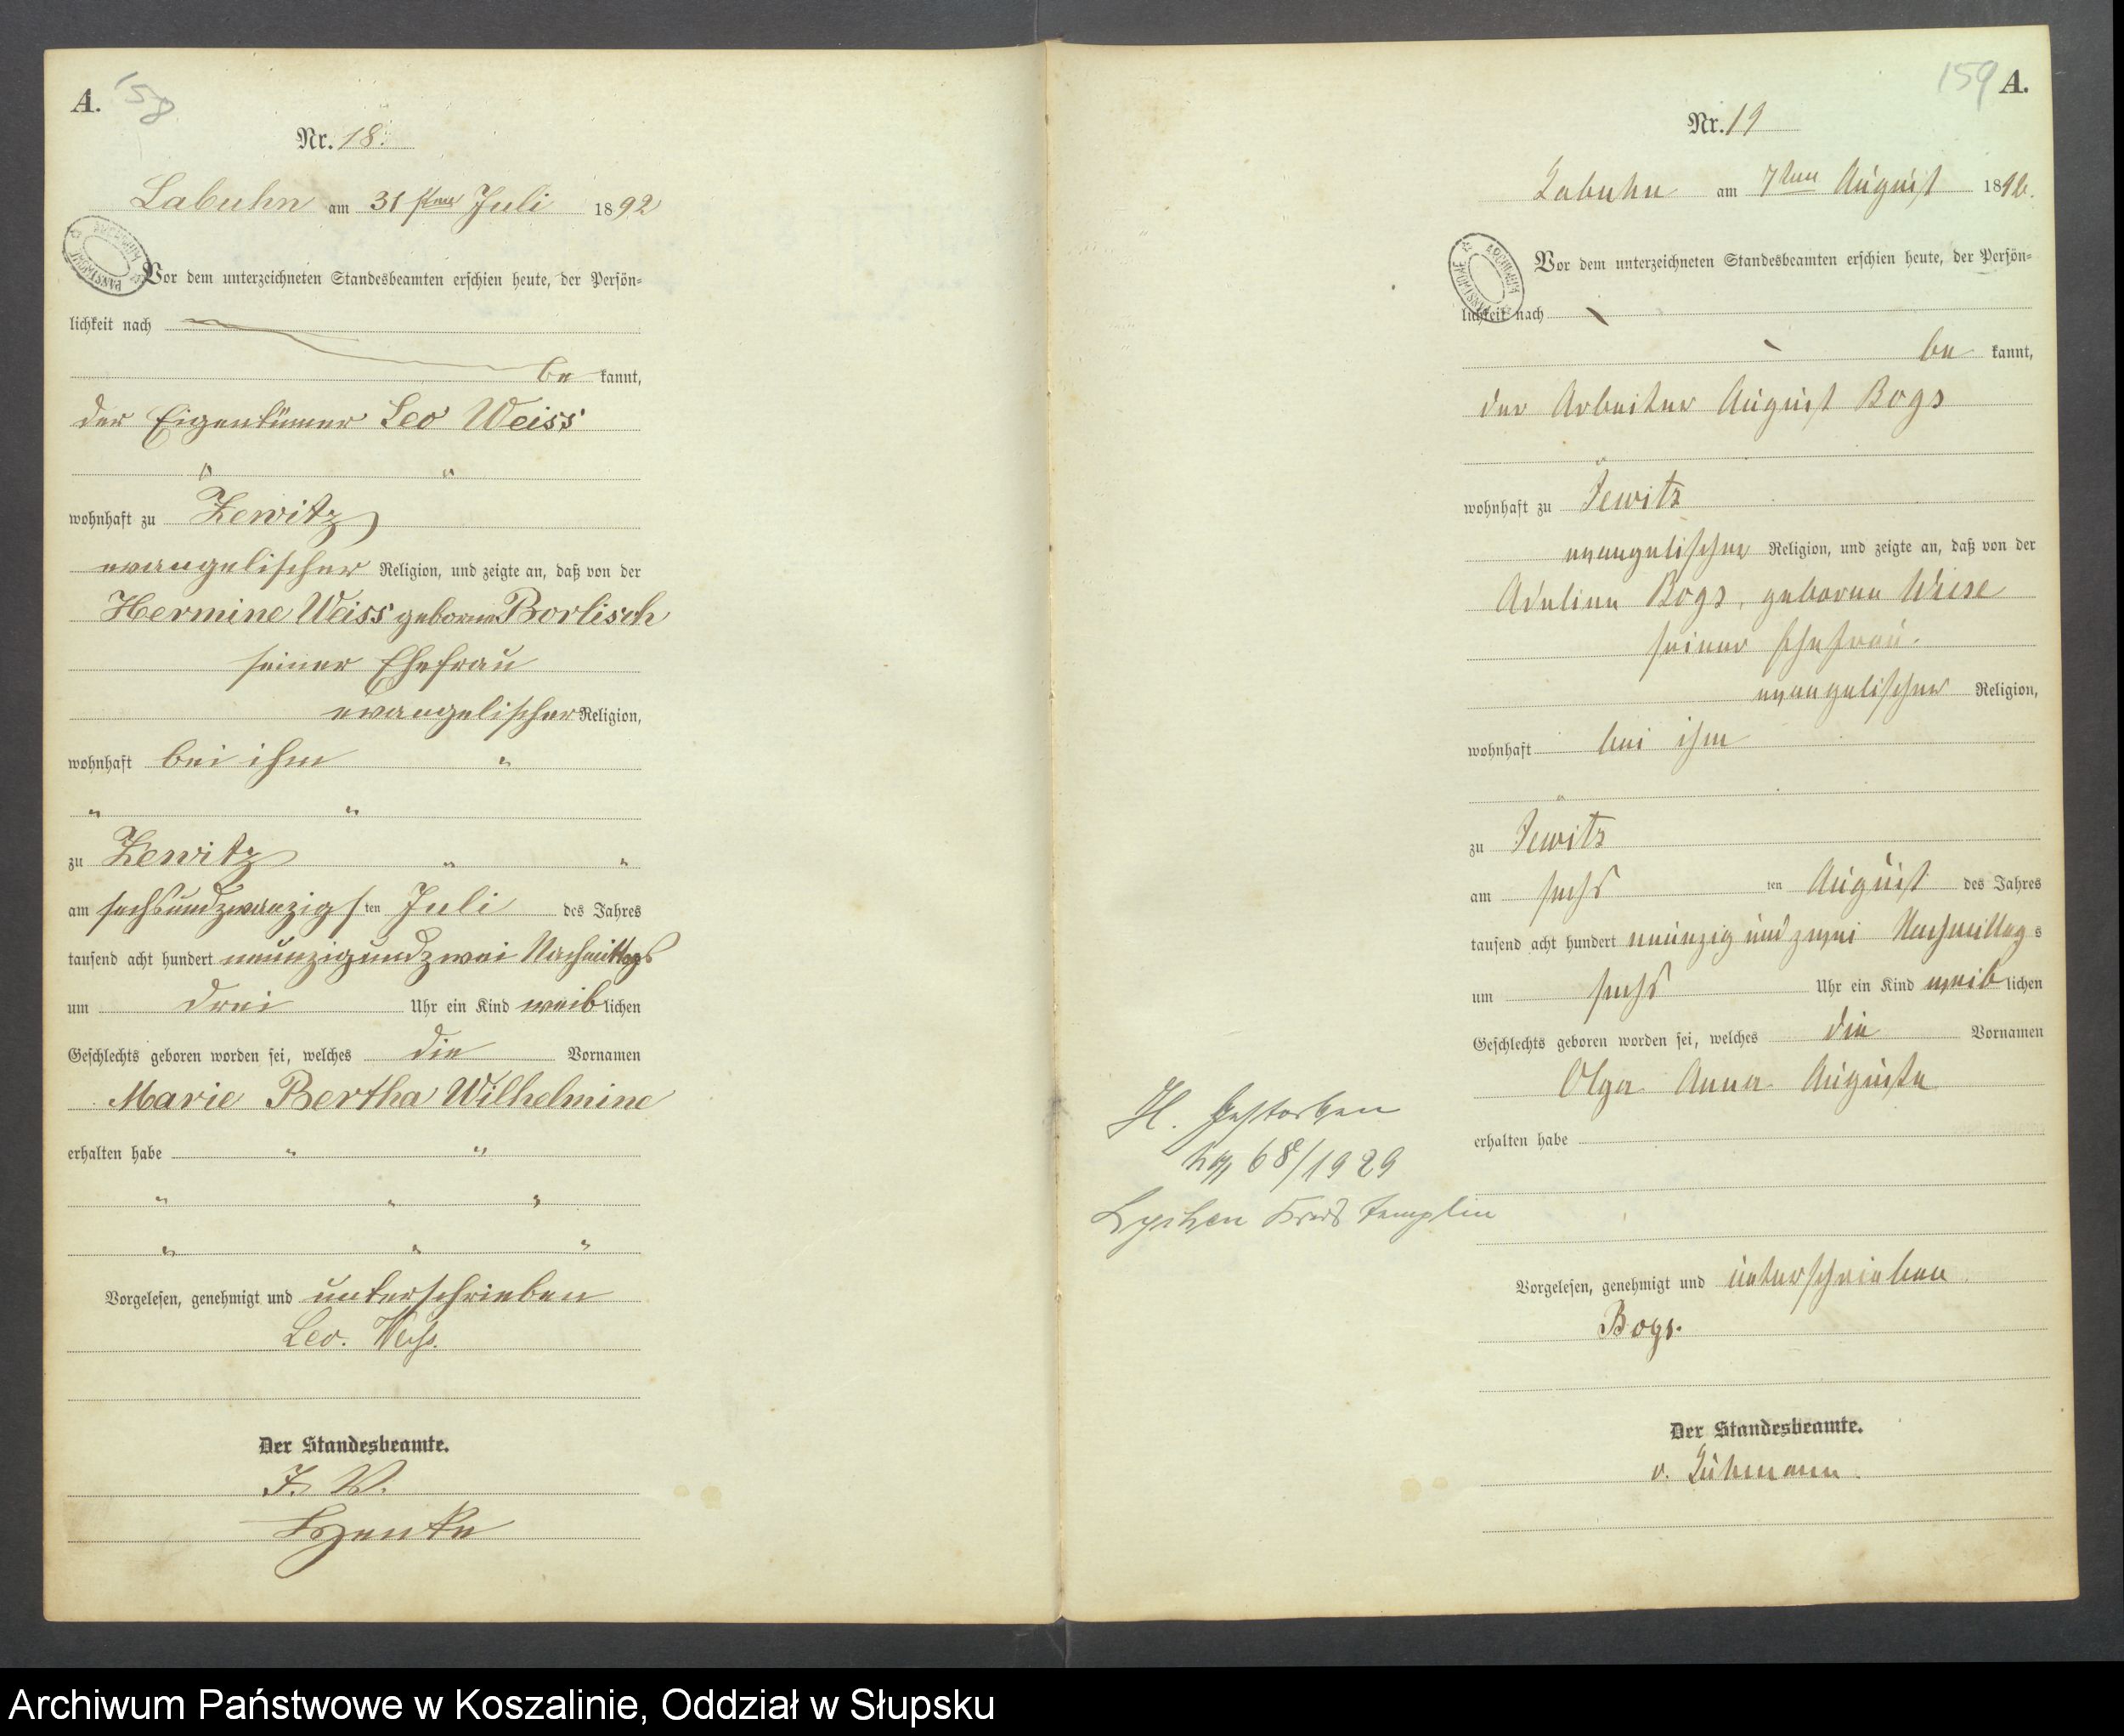 A. 158
Nr. 18.
Labuhn am 31sten Juli 1892
Vor dem unterzeichneten Standesbeamten erschien heute, der Persön=
lichkeit nach
be kannt,
der Eigentümer Leo Weiss
" "
wohnhaft zu Zewitz
evangelischer Religion, und zeigte an, daß von der
Hermine Weiss geborne Borlisch
seiner Ehefrau
evangelischer Religion,
wohnhaft bei ihm "
" "
zu Zewitz " "
am sechsundzwanzigsten Juli des Jahres
tausend acht hundert neunzig und zwei Nachmittags
um drei Uhr ein Kind weiblichen
Geschlechts geboren worden sei, welches die Vornamen
Marie Bertha Wilhelmine
erhalten habe " "
" " "
" " "
Vorgelesen, genehmigt und unterschrieben
Leo. Weiß.
Der Standesbeamte.
J. V.
159 A.
Nr. 19
Labuhn am 7ten August 1892.
Vor dem unterzeichneten Standesbeamten erschien heute, der Persön=
lichkeit nach
be kannt,
der Arbeiter August Bogs
"
wohnhaft zu Zewitz
evangelischer Religion, und zeigte an, daß von der
Adeline Bogs, geborne Wiese
seiner Ehefrau.
evangelischer Religion,
wohnhaft bei ihm
"
zu Zewitz
am sechs ten August des Jahres
tausend acht hundert neunzig und zwei Nachmittags
um sechs Uhr ein Kind weiblichen
Geschlechts geboren worden sei, welches die Vornamen
Olga Anna Auguste
erhalten habe
H. Gestorben
68/1929
Lychen Kreis Templin
Vorgelesen, genehmigt und unterschrieben
Bogs.
Der Standesbeamte.
v. Zühmann.
ARCHIWUM PAŃSTWOWE
ARCHIWUM PAŃSTWOWE
Archiwum Państwowe w Koszalinie, Oddział w Słupsku